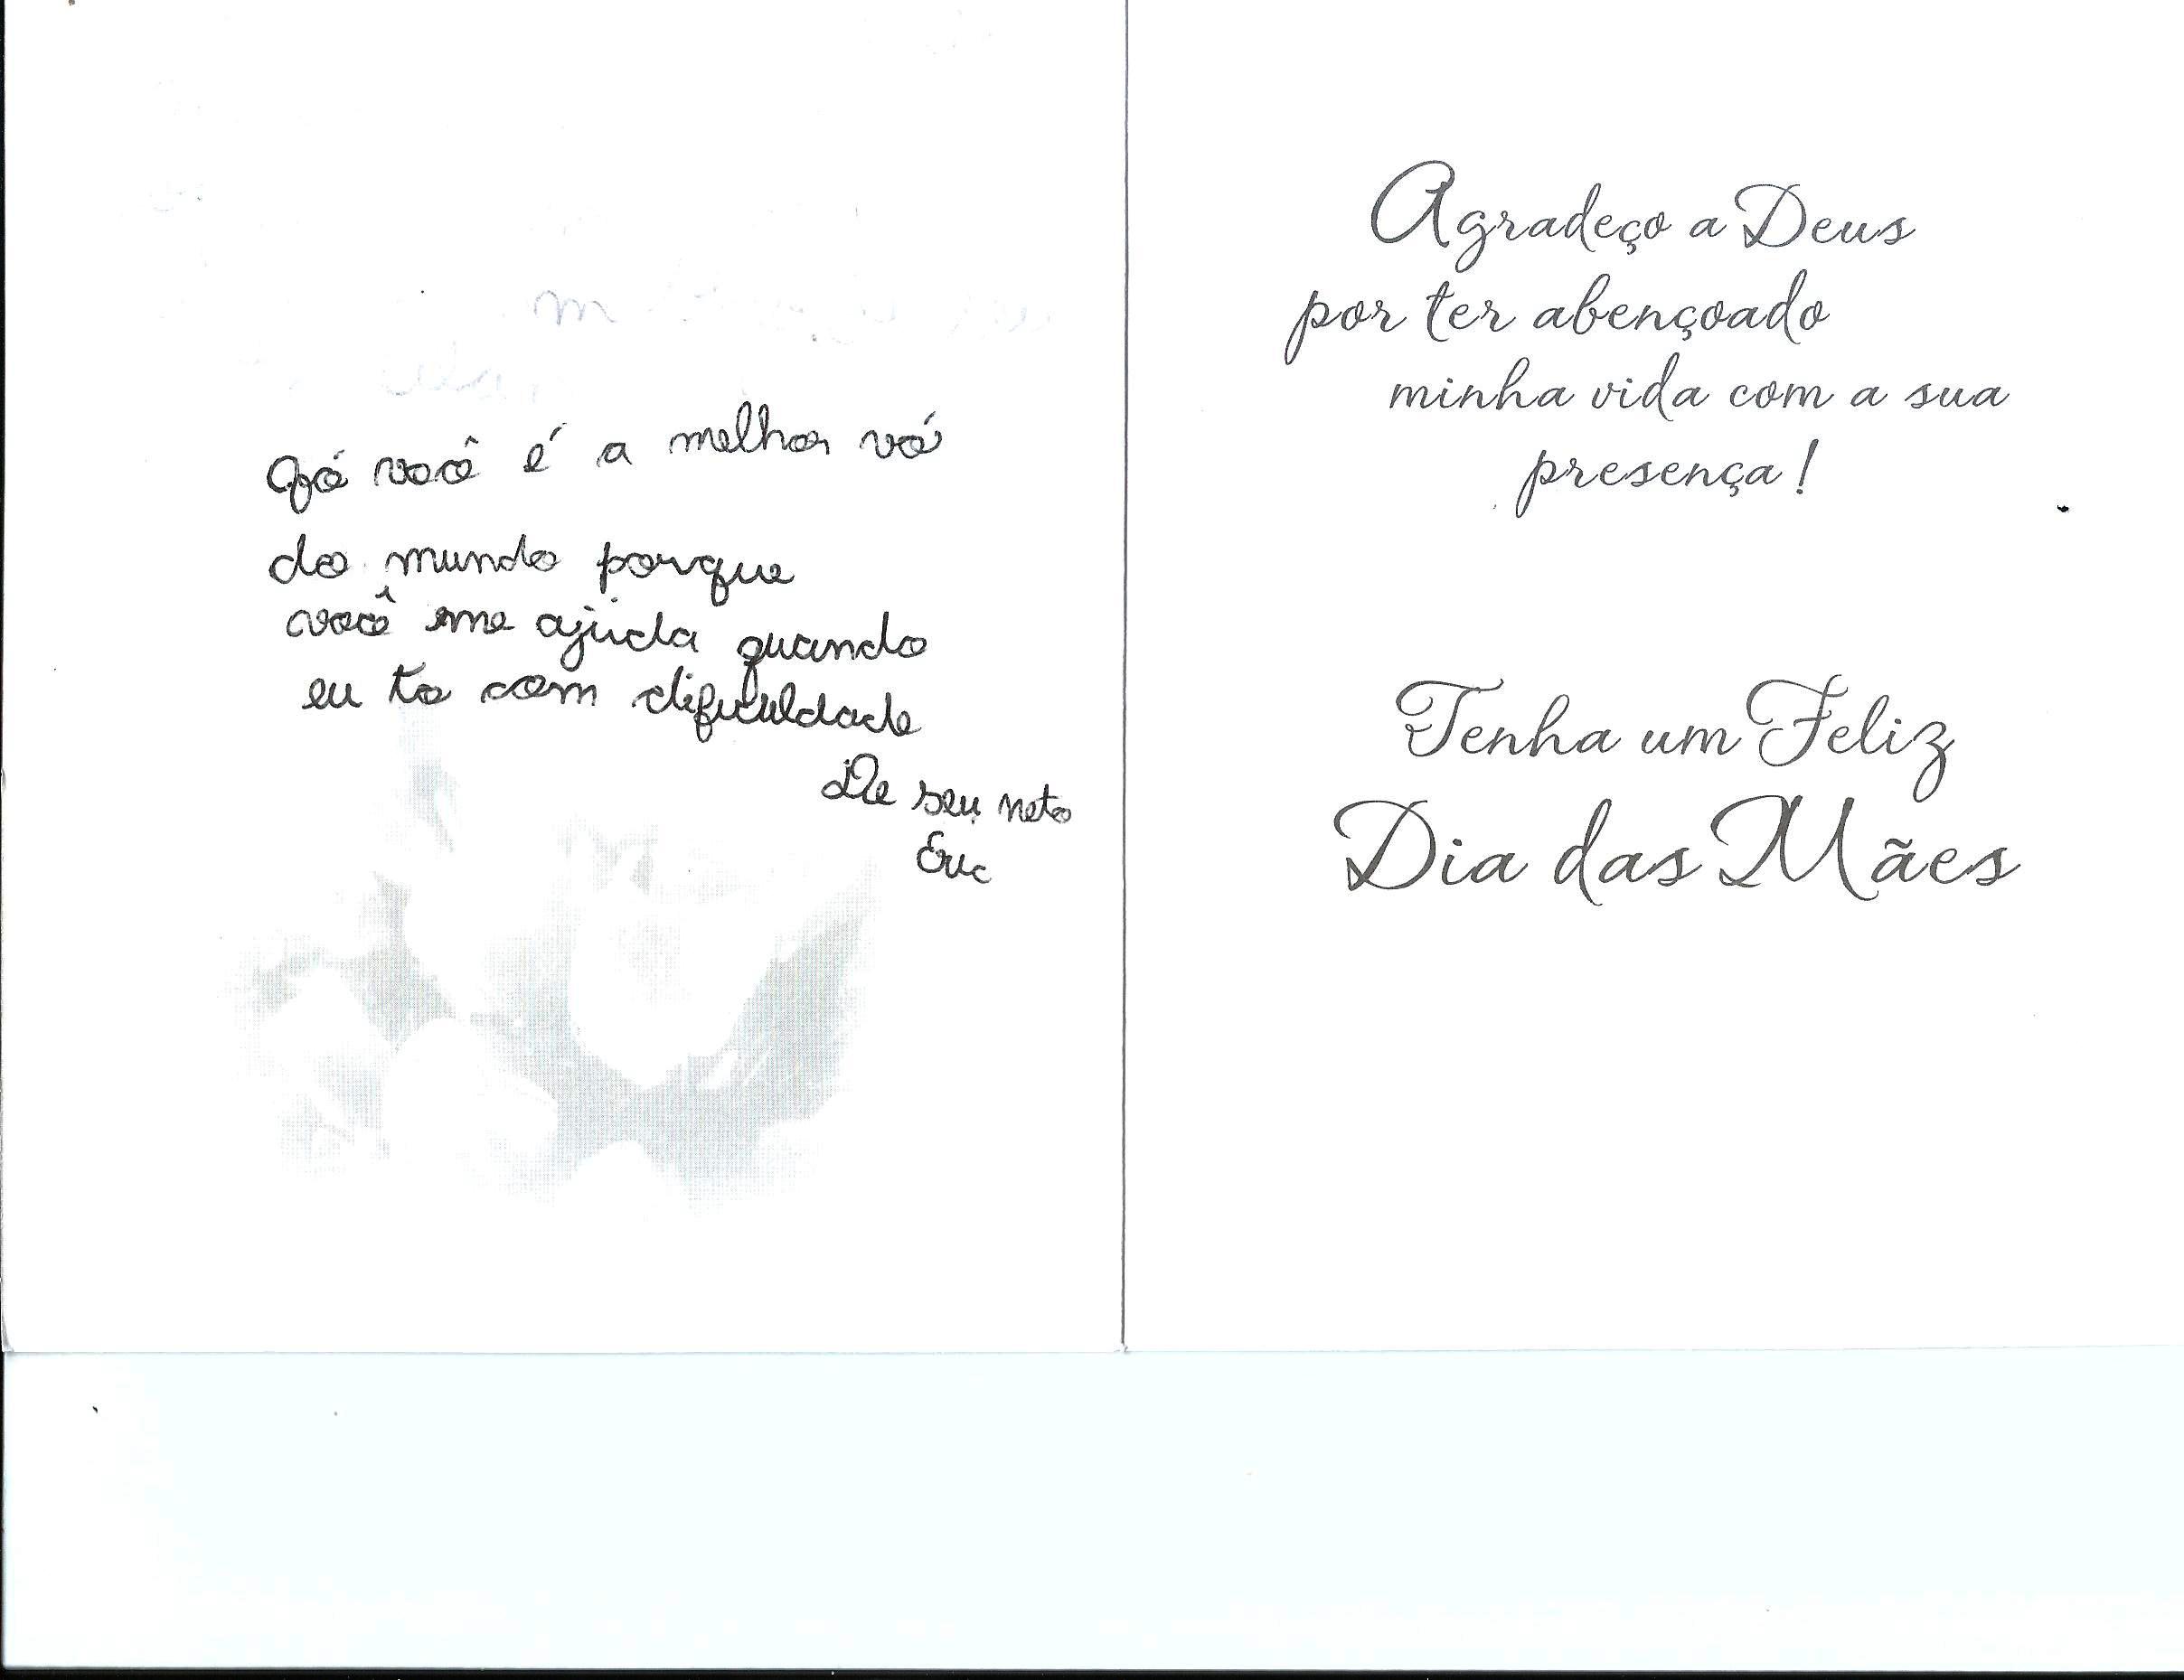 Vó você é a melhor vó
do mundo porque
você me ajuda quando
eu to com dificuldade
De seu neto
Eric
Agradeço a Deus
por ter abençoado
minha vida com a sua
presença!
Tenha um Feliz
Dia das Mães